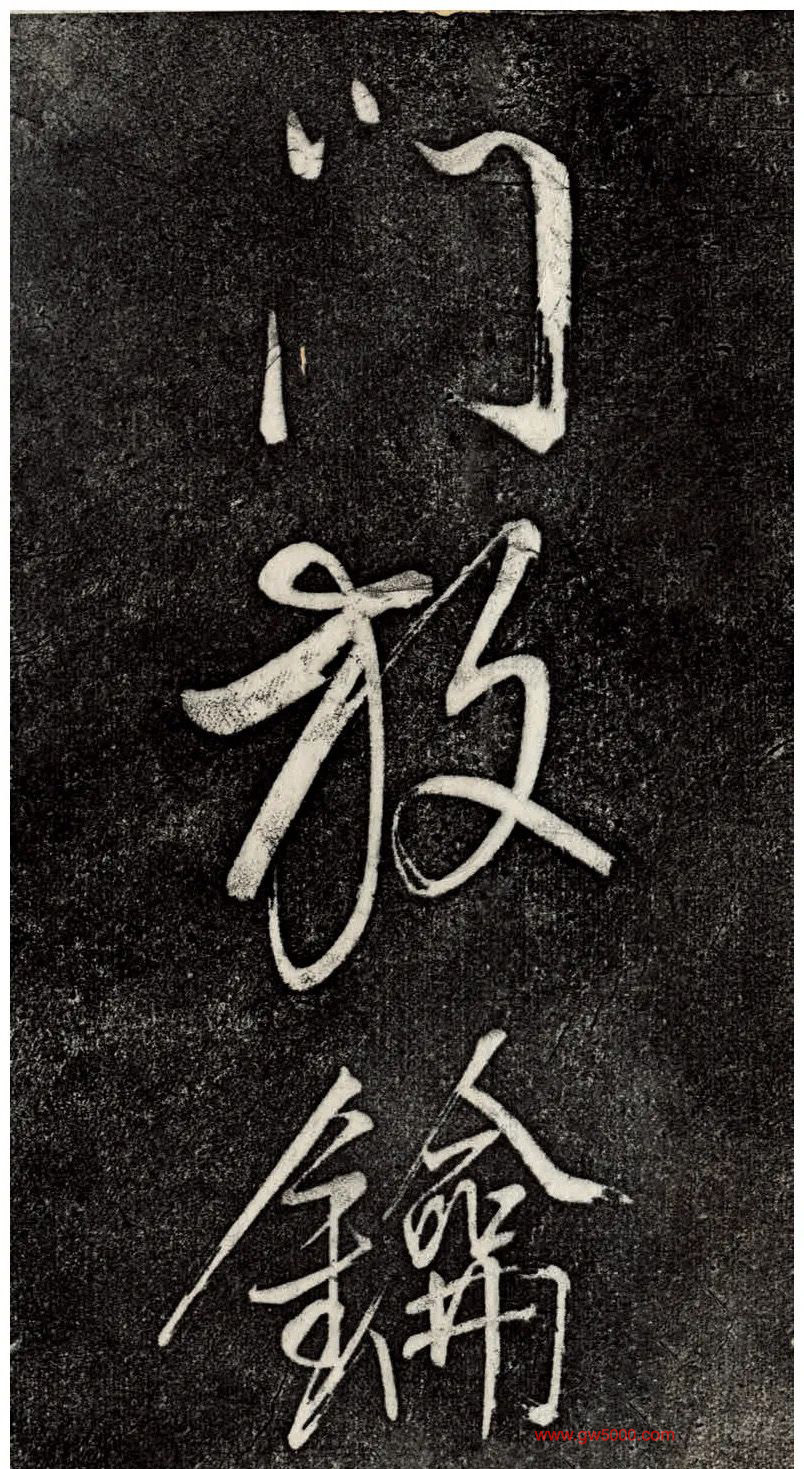 门放鑰
www.gw5000.com